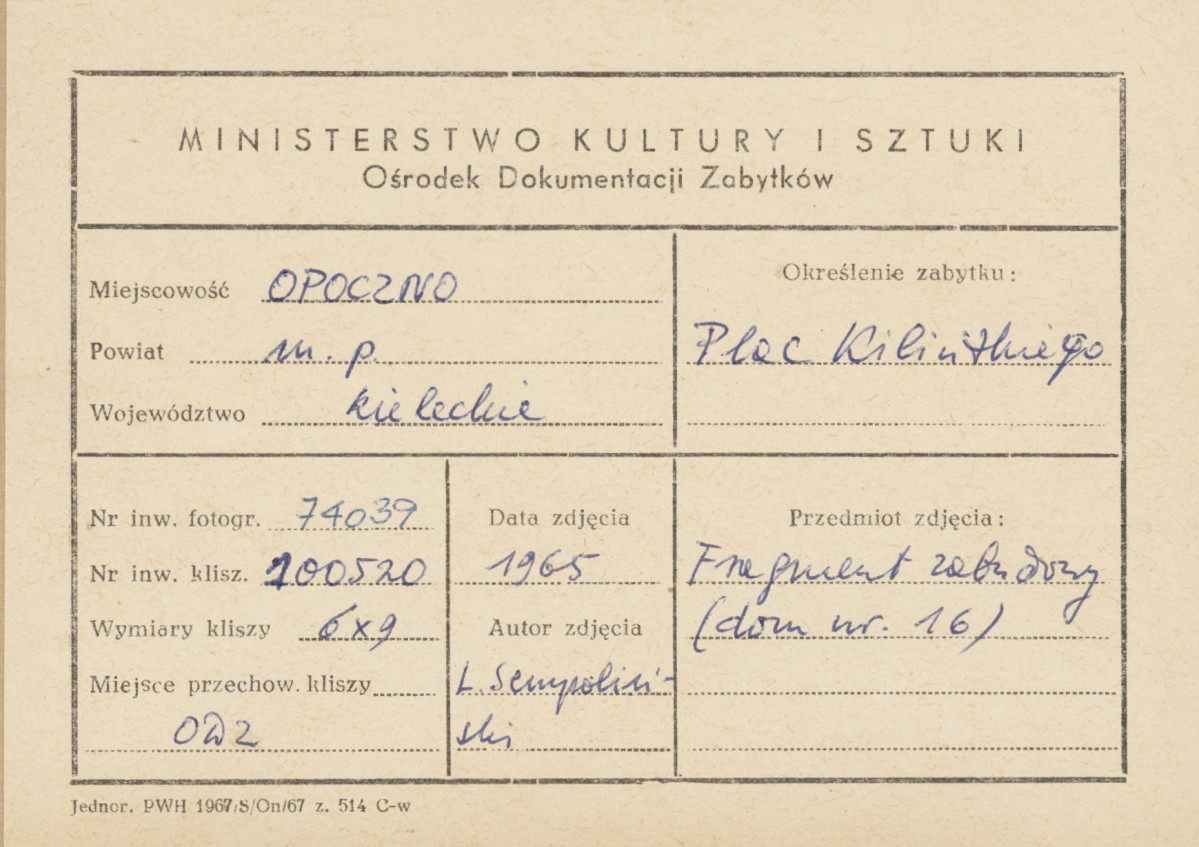 MINISTERSTWO KULTURY I SZTUKI
Ośrodek Dokumentacji Zabytków
Miejscowość OPOCZNO
Powiat m. p.
Województwo kieleckie
Określenie zabytku:
Plac Kilińskiego
Nr inw. fotogr. 74039
Nr inw. klisz. 100520
Wymiary kliszy 6x9
Miejsce przechow. kliszy
ODZ
Data zdjęcia
1965
Autor zdjęcia
L. Sempoliń-
ski
Przedmiot zdjęcia:
Fragment zabudowy
(dom nr. 16)
Jednor. PWH 1967/S/On/67 z. 514 C-w